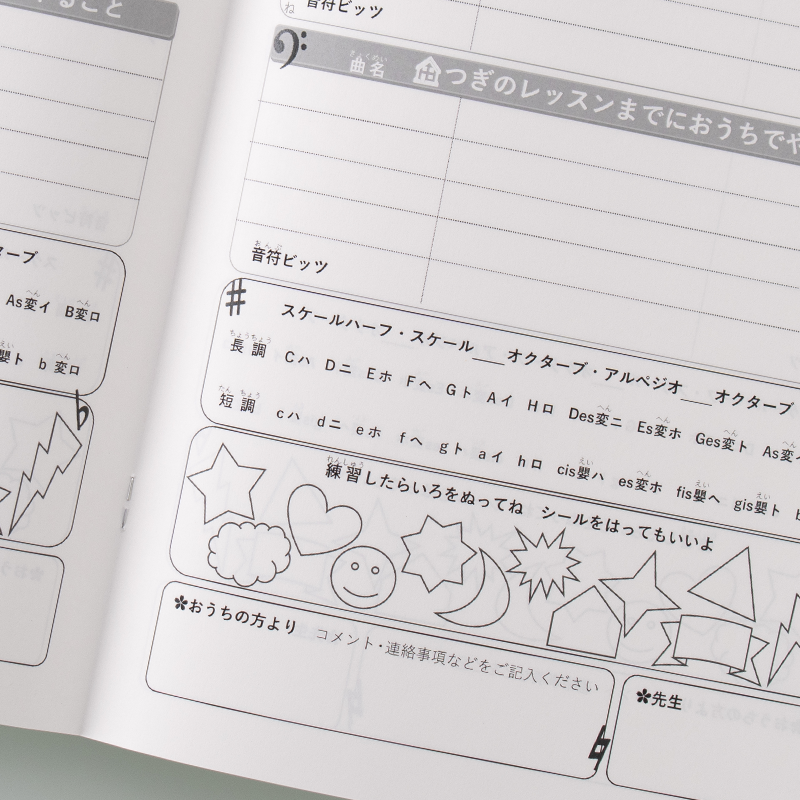 ること
ターブ
As変イ B変ロ
嬰ト b変ロ
音符ビッツ
曲名 つぎのレッスンまでにおうちでや
音符ビッツ
スケールハーフ・スケール___オクターブ・アルペジオ___オクターブ
長調 Cハ Dニ Eホ Fヘ Gト Aイ Hロ Des変ニ Es変ホ Ges変ト As変イ
短調 cハ dニ eホ fヘ gト aイ hロ cis嬰ハ es変ホ fis嬰ヘ gis嬰ト b
練習したらいろをぬってね シールをはってもいいよ
✽おうちの方より コメント・連絡事項などをご記入ください
✽先生